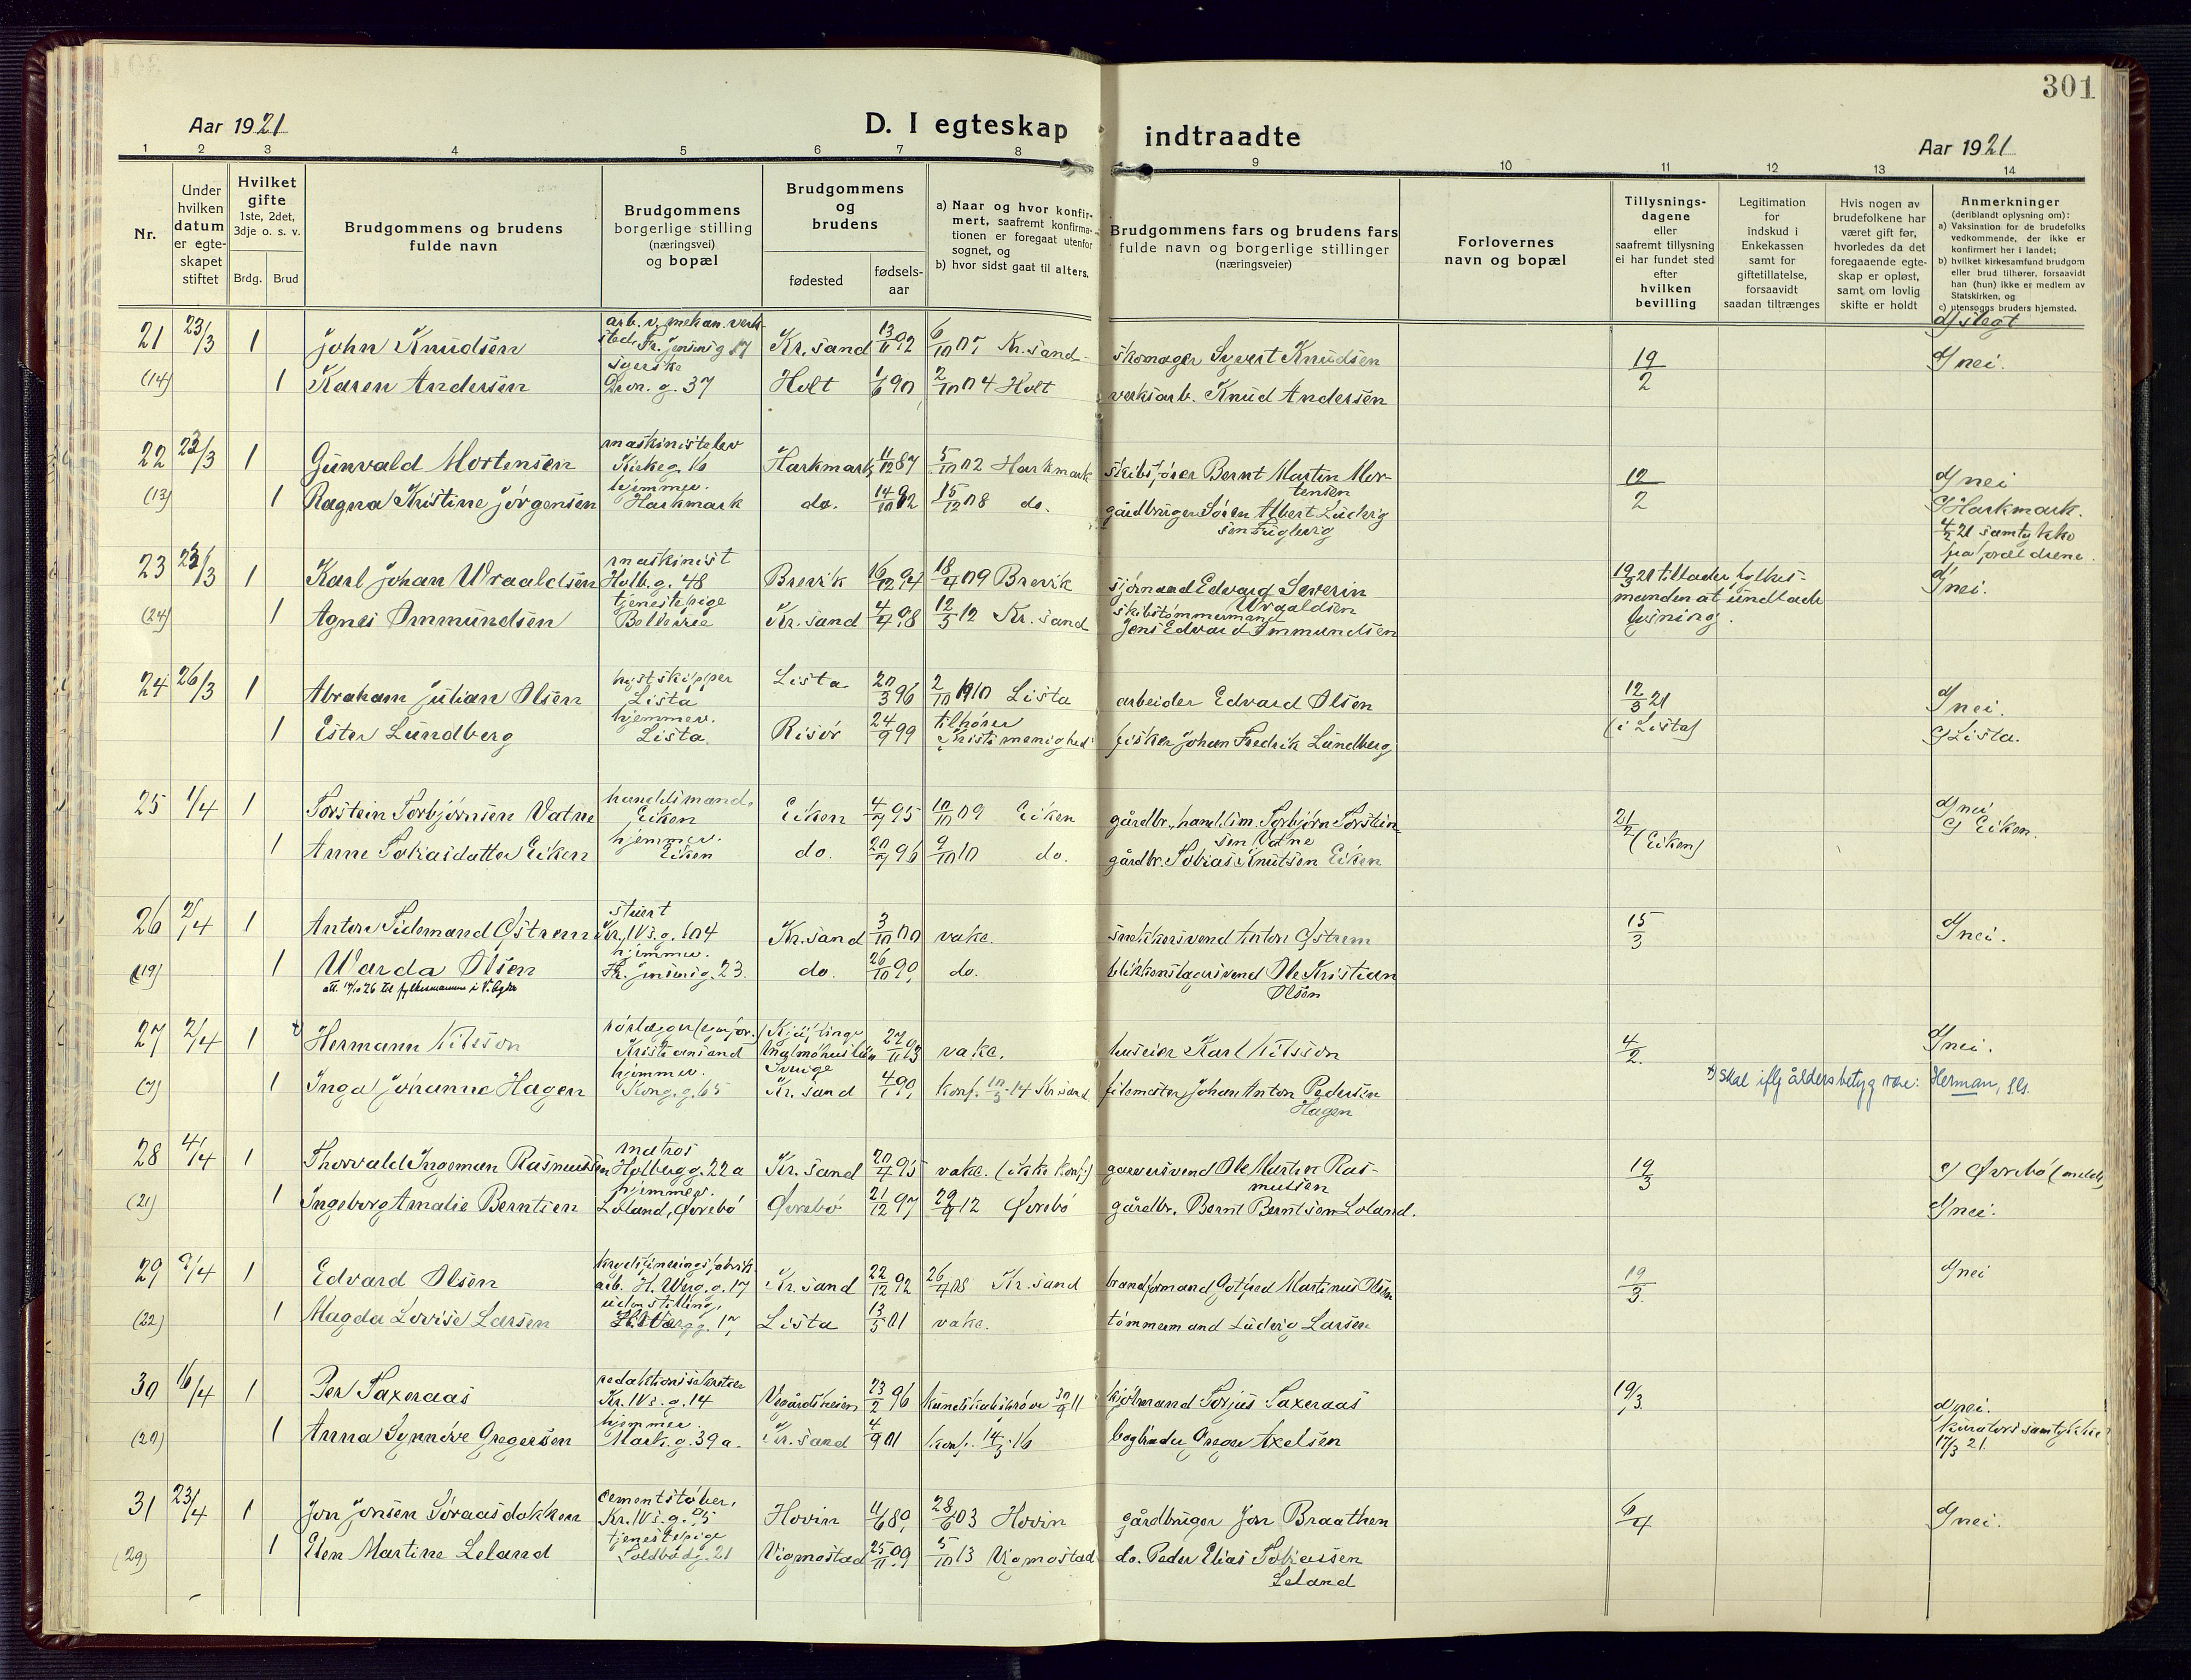 301
Aar 1921
D. I egteskap indtraadte
Aar 1921
1 2 3 4 5 6 7 8 9 10 11 12 13 14
Nr.
Under hvilken datum er egte-skapet stiftet
Hvilket gifte
1ste, 2det, 3dje o. s. v.
Brdg. Brud
Brudgommens og brudens fulde navn
Brudgommens borgerlige stilling (næringsvei) og bopæl
Brudgommens og brudens
fødested
fødsels-aar
a) Naar og hvor konfir-mert, saafremt konfirma-tionen er foregaat utenfor sognet, og
b) hvor sidst gaat til alters.
Brudgommens fars og brudens fars fulde navn og borgerlige stillinger (næringsveier)
Forlovernes navn og bopæl
Tillysnings-dagene eller saafremt tillysning ei har fundet sted efter hvilken bevilling
Legitimation for indskud i Enkekassen samt for giftetillatelse, forsaavidt saadan tiltrænges
Hvis nogen av brudefolkene har været gift før, hvorledes da det foregaaende egte-skap er opløst, samt om lovlig skifte er holdt
Anmerkninger
(deriblandt oplysning om):
a) Vaksination for de brudefolks vedkommende, der ikke er konfirmert her i landet;
b) hvilket kirkesamfund brudgom eller brud tilhører, forsaavidt han (hun) ikke er medlem av Statskirken, og
c) utensogns bruders hjemsted.
d/ slegt
21 23/3 1 John Knudsen arb. v. mekan. verk-sted, Fr. Jensensg 17 Kr.sand 13/11 92 6/10 07, Kr.sand skomager Syvert Knudsen 19/2 d/ nei.
(14) 1 Karen Andersen syerske Dron. g. 37 Holt 1/6 90 2/10 04 Holt verksarb. Knud Andersen
22 23/3 1 Gunvald Mortensen maskinistelev Kirkeg. 16 Harkmark 11/12 87 5/10 02 Harkmark skibsfører Bernt Martin Mor-tensen 12/2 d/ nei
(13) 1 Ragna Kristine Jørgensen hjemmev. Harkmark do. 14/10 92 15/12 08 do. gårdbruger Søren Albert Ludvig sen Fuglevig c/ Harkmark.
4/2 21 samtykke fra forældrene.
23 23/3 1 Karl Johan Wraaldsen maskinist Holb. g. 48 Brevik 16/12 94 18/4 09 Brevik sjømand Edvard Severin Wraaldsen 19/3 21 tillader fylkes-manden at undlade lysning. d/ nei.
(24) 1 Agnes Ommundsen tjenestepige Bellevue Kr.sand 4/4 98 12/5 12 Kr.sand skibstømmermand Jens Edvard Ommundsen
24 26/3 1 Abraham Julian Olsen kystskipper Lista Lista 20/3 96 2/10 1910 Lista arbeider Edvard Olsen 12/3 21 (i Lista) d/ nei.
1 Ester Lundberg hjemmev. Lista. Risør 24/9 99 tilhører Kristi menighed fisker Johan Fredrik Lundberg c/ Lista.
25 1/4 1 Torstein Torbjørnsen Vatne handelsmand. Eiken Eiken 4/7 95 10/10 09 Eiken gårdbr., handelsm. Torbjørn Torstein-sen Vatne 21/2 (Eiken) d/ nei
1 Anne Tobiasdatter Eiken hjemmev. Eiken do. 20/7 96 9/10 10 do. gårdbr. Tobias Knutsen Eiken c/ Eiken.
26 2/4 1 Anton Tidemand Østrem stuert Kr. IVs. g. 104 Kr.sand 3/10 00 vake. snekkersvend Anton Østrem 15/3 d/ nei.
(19) 1 Warda Olsen hjemmev. Fr. Jensensg. 23. do. 26/10 90, do. blikkenslagersvend Ole Kristian Olsen
att. 14/10 26 til fylkesmannen i V. Agder
27 2/4 1 x) Hermann Nilsson rørlægger Kristiansand Sverige vake. huseier Karl Nilsson 4/2. d/ nei.
(7) 1 Inga Johanne Hagen hjemmev. Kong. g. 65 Kr.sand konf. 10/5 - 14 Kr.sand filemester Johan Anton Pedersen Hagen
x) skal iflg åldersbetyg være: Herman, S.S.
28 4/4 1 Thorvald Ingeman Rasmussen matros Holbergg. 22 a Kr.sand 20/4 95 vake. (ikke konf.) garversvend Ole Martin Ras-mussen 19/3 c/ Øvrebø (meldt)
(21) 1 Ingeborg Amalie Berntsen hjemmev. Løland, Øvrebø Øvrebø 21/12 97 29/9 12 Øvrebø gårdbr. Bernt Berntsen Løland. d/ nei.
29 9/4 1 Edvard Olsen arb. H. Werg. g. 17 Kr.sand 22/12 92 26/4 08 Kr.sand brandformand Gotfred Martinus Olsen 19/3. d/ nei
(22) 1 Magda Lovise Larsen uden stilling, H. Wergg. 17, Lista 13/5 01 vake. tømmermand Ludvig Larsen
30 16/4 1 Per Saxeraas redaktionssekretær Kr. IVs. g. 14 Vegårdsheien 23/2 96 kundskabsprøve 30/9 11 Torjus Saxeraas 19/3 d/ nei.
(20) 1 Anna Synnøve Gregersen hjemmev. Mark. g. 39 a. Kr.sand 4/9 01 konf. 14/5 - 16 bogbinder Greger Axelsen kurators samtykke 17/3 21.
31 23/4 1 Jon Jonsen Soraasdokken cementstøber, Kr. IVs. g. 95 Hovin 11/6 80, 28/6 03 Hovin gårdbruger Jon Braathen 6/4 d/ nei.
(29) 1 Elen Martine Leland tjenestepige Toldbodg. 21 Vigmostad 25/11 99 5/10 13 Vigmostad do. Peder Elias Tobiassen Leland